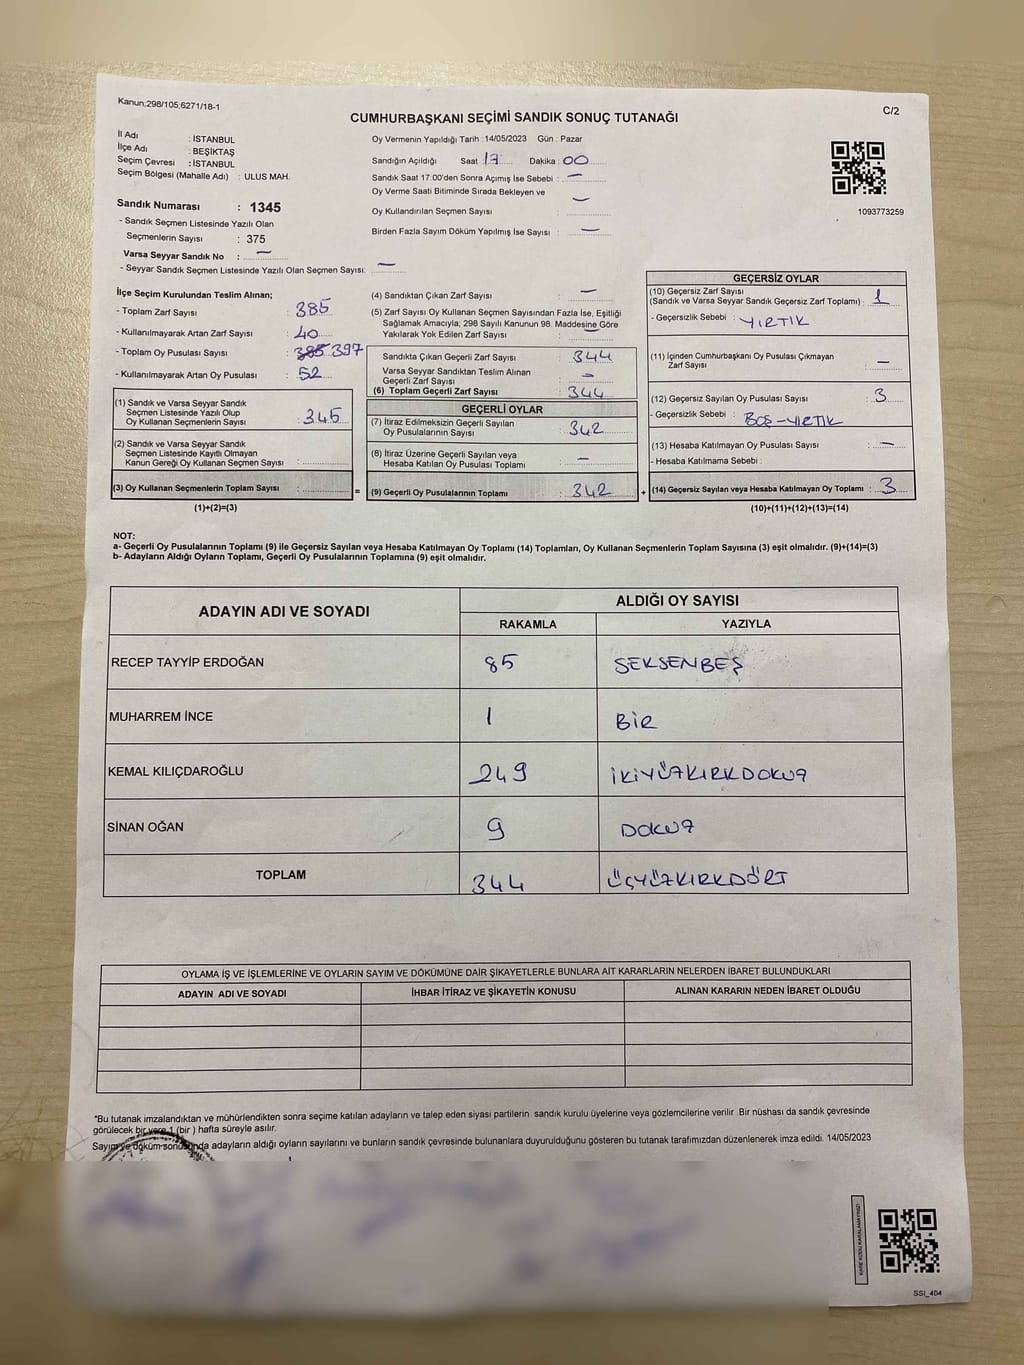 Kanun;298/105;6271/18-1
C/2
CUMHURBAŞKANI SEÇİMİ SANDIK SONUÇ TUTANAĞI
İl Adı : İSTANBUL
İlçe Adı : BEŞİKTAŞ
Seçim Çevresi : İSTANBUL
Seçim Bölgesi (Mahalle Adı) : ULUS MAH.
Sandık Numarası : 1345
- Sandık Seçmen Listesinde Yazılı Olan
Seçmenlerin Sayısı : 375
Varsa Seyyar Sandık No : —
- Seyyar Sandık Seçmen Listesinde Yazılı Olan Seçmen Sayısı: —
Oy Vermenin Yapıldığı Tarih : 14/05/2023 Gün : Pazar
Sandığın Açıldığı Saat 17 Dakika : 00
Sandık Saat 17.00'den Sonra Açımış İse Sebebi : —
Oy Verme Saati Bitiminde Sırada Bekleyen ve
Oy Kullandırılan Seçmen Sayısı : —
Birden Fazla Sayım Döküm Yapılmış İse Sayısı : —
1093773259
İlçe Seçim Kurulundan Teslim Alınan;
- Toplam Zarf Sayısı : 385
- Kullanılmayarak Artan Zarf Sayısı : 40
- Toplam Oy Pusulası Sayısı : 385 397
- Kullanılmayarak Artan Oy Pusulası : 52
(1) Sandık ve Varsa Seyyar Sandık
Seçmen Listesinde Yazılı Olup
Oy Kullanan Seçmenlerin Sayısı : 345
(2) Sandık ve Varsa Seyyar Sandık
Seçmen Listesinde Kayıtlı Olmayan
Kanun Gereği Oy Kullanan Seçmen Sayısı :
(3) Oy Kullanan Seçmenlerin Toplam Sayısı :
(1)+(2)=(3)
(4) Sandıktan Çıkan Zarf Sayısı : —
(5) Zarf Sayısı Oy Kullanan Seçmen Sayısından Fazla İse, Eşitliği
Sağlamak Amacıyla; 298 Sayılı Kanunun 98. Maddesine Göre
Yakılarak Yok Edilen Zarf Sayısı : —
Sandıkta Çıkan Geçerli Zarf Sayısı : 344
Varsa Seyyar Sandıktan Teslim Alınan
Geçerli Zarf Sayısı : —
(6) Toplam Geçerli Zarf Sayısı : 344
GEÇERLİ OYLAR
(7) İtiraz Edilmeksizin Geçerli Sayılan
Oy Pusulalarının Sayısı : 342
(8) İtiraz Üzerine Geçerli Sayılan veya
Hesaba Katılan Oy Pusulası Toplamı : —
= (9) Geçerli Oy Pusulalarının Toplamı : 342
GEÇERSİZ OYLAR
(10) Geçersiz Zarf Sayısı
(Sandık ve Varsa Seyyar Sandık Geçersiz Zarf Toplamı) : 1
- Geçersizlik Sebebi : YIRTIK
(11) İçinden Cumhurbaşkanı Oy Pusulası Çıkmayan
Zarf Sayısı : —
(12) Geçersiz Sayılan Oy Pusulası Sayısı : 3
- Geçersizlik Sebebi : BOŞ-YIRTIK
(13) Hesaba Katılmayan Oy Pusulası Sayısı : —
- Hesaba Katılmama Sebebi :
+ (14) Geçersiz Sayılan veya Hesaba Katılmayan Oy Toplamı : 3
(10)+(11)+(12)+(13)=(14)
NOT:
a- Geçerli Oy Pusulalarının Toplamı (9) ile Geçersiz Sayılan veya Hesaba Katılmayan Oy Toplamı (14) Toplamları, Oy Kullanan Seçmenlerin Toplam Sayısına (3) eşit olmalıdır. (9)+(14)=(3)
b- Adayların Aldığı Oyların Toplamı, Geçerli Oy Pusulalarının Toplamına (9) eşit olmalıdır.
ADAYIN ADI VE SOYADI
ALDIĞI OY SAYISI
RAKAMLA YAZIYLA
RECEP TAYYİP ERDOĞAN 85 SEKSENBEŞ
MUHARREM İNCE 1 BİR
KEMAL KILIÇDAROĞLU 249 İKİYÜZKIRKDOKUZ
SİNAN OĞAN 9 DOKUZ
TOPLAM 344 ÜÇYÜZKIRKDÖRT
OYLAMA İŞ VE İŞLEMLERİNE VE OYLARIN SAYIM VE DÖKÜMÜNE DAİR ŞİKAYETLERLE BUNLARA AİT KARARLARIN NELERDEN İBARET BULUNDUKLARI
ADAYIN ADI VE SOYADI İHBAR İTİRAZ VE ŞİKAYETİN KONUSU ALINAN KARARIN NEDEN İBARET OLDUĞU
*Bu tutanak imzalandıktan ve mühürlendikten sonra seçime katılan adayların ve talep eden siyasi partilerin sandık kurulu üyelerine veya gözlemcilerine verilir. Bir nüshası da sandık çevresinde
görülecek bir yere 1 (bir ) hafta süreyle asılır.
Sayım ve döküm sonucunda adayların aldığı oyların sayılarını ve bunların sandık çevresinde bulunanlara duyurulduğunu gösteren bu tutanak tarafımızdan düzenlenerek imza edildi. 14/05/2023
KARE KODU KARALAMAYINIZ!
SSI_404